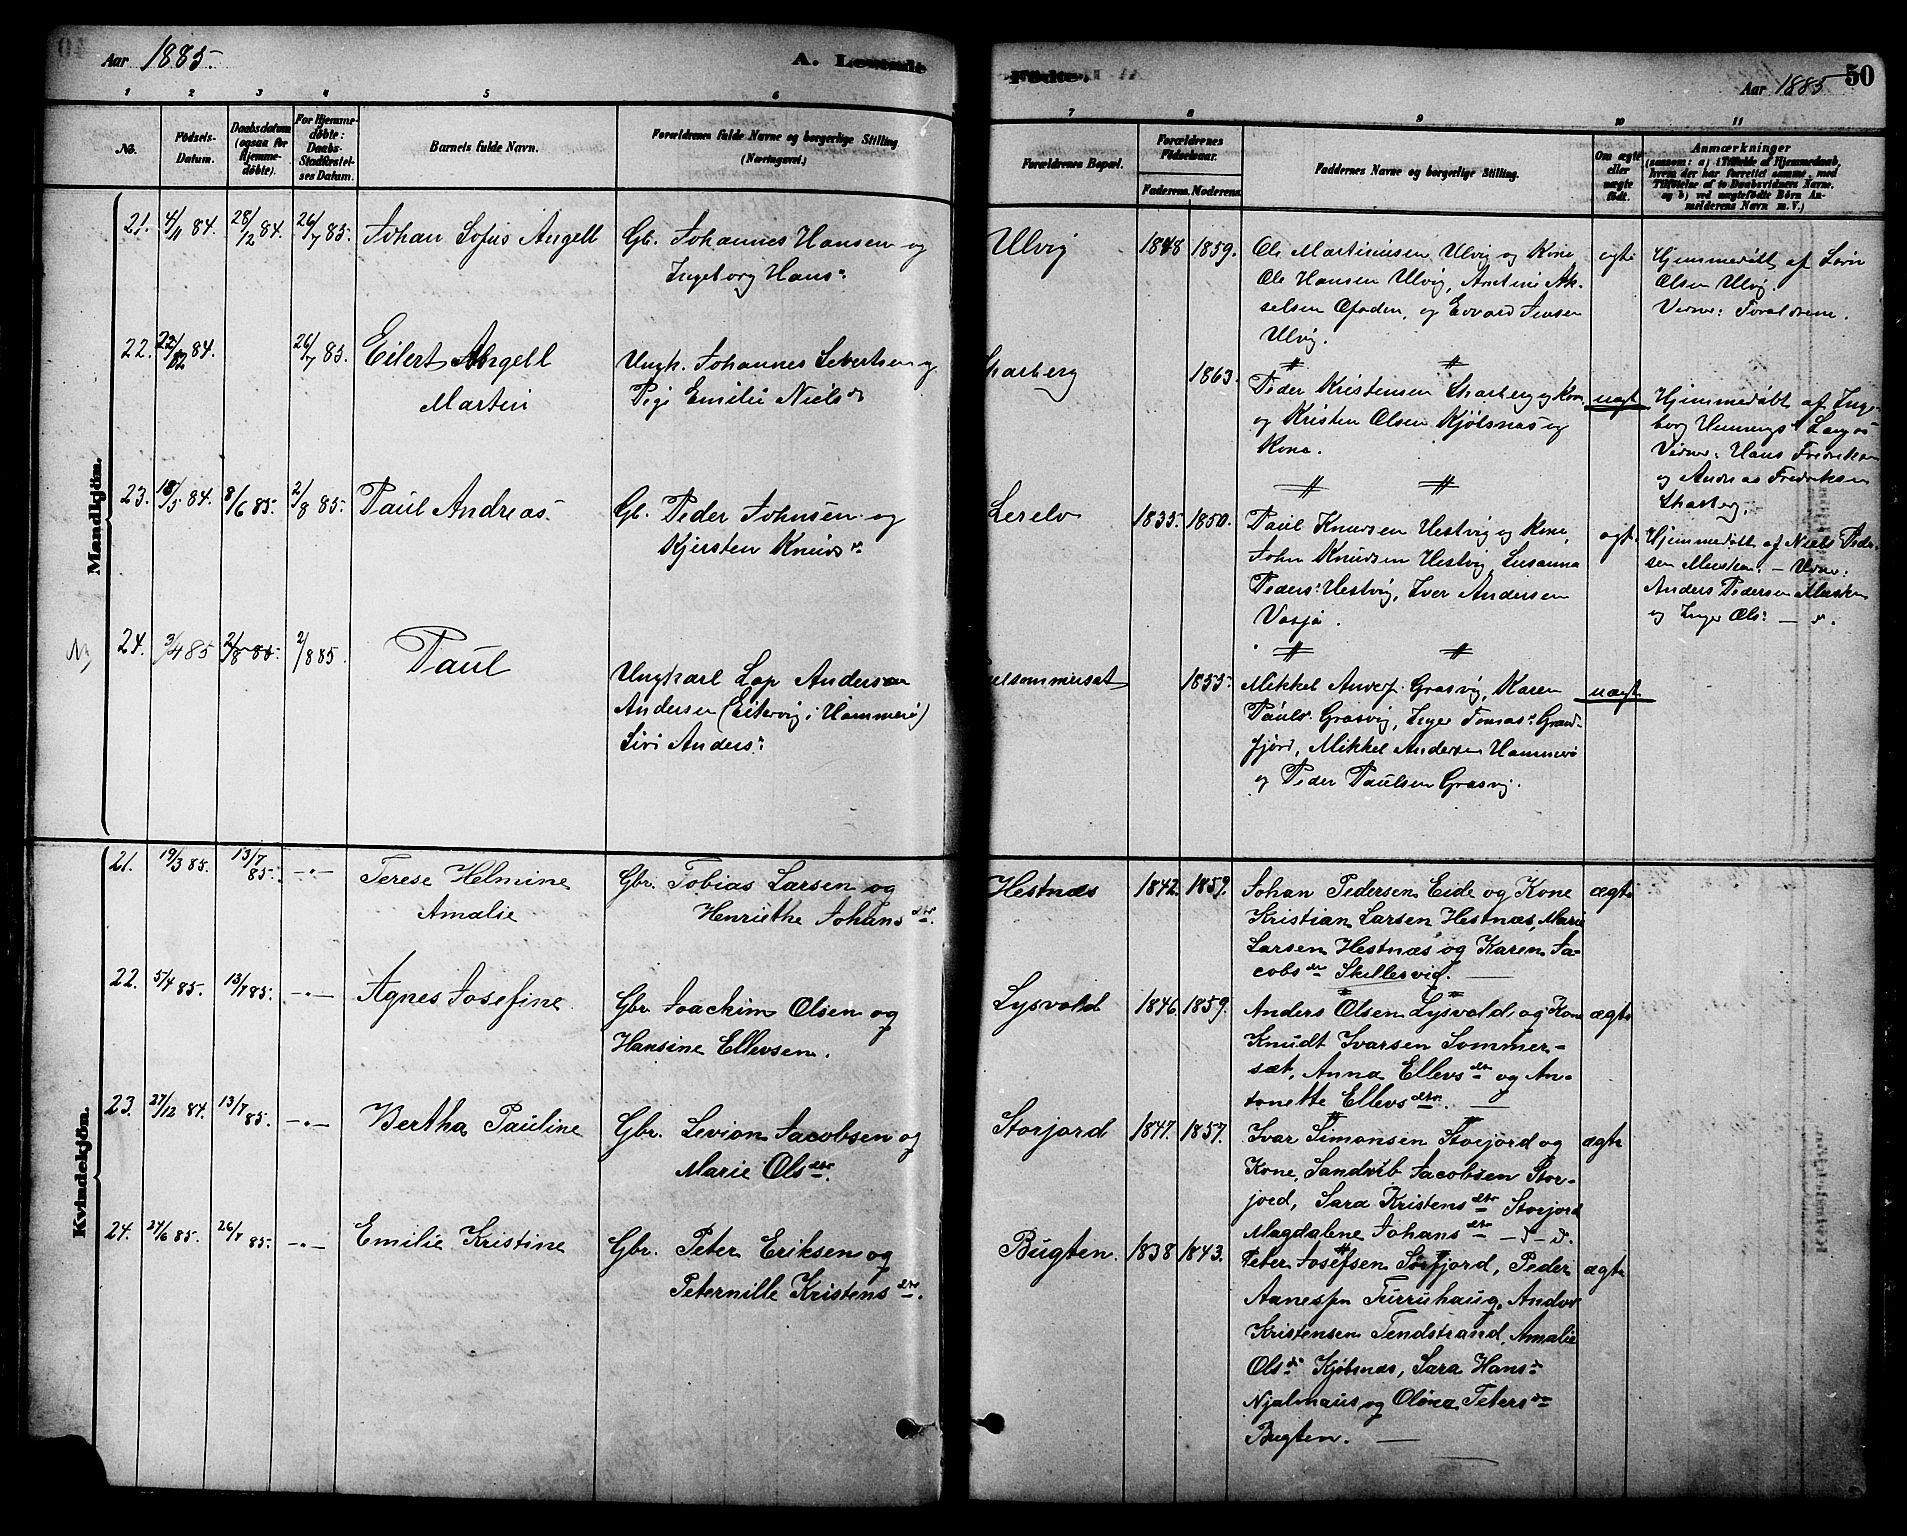 Aar 1885.
A. Levende
Fødte.
Aar 1885
50
1
2
3
4
5
6
7
8
9
10
11
No.
Fødsels-
Datum.
Daabsdatum
(ogsaa for
Hjemme-
døbte).
For Hjemme-
døbte:
Daabs-
Stadfæstel-
ses Datum.
Barnets fulde Navn.
Forældrenes fulde Navne og borgerlige Stilling
(Næringsvei.)
Forældrenes Bopæl.
Forældrenes
Fødselsaar.
Faderens.
Moderens.
Faddernes Navne og borgerlige Stilling.
Om ægte
eller
uægte
født.
Anmærkninger
(saasom: a) i Tilfælde af Hjemmedaab,
hvem der har forrettet samme, med
Tilføielse af to Daabsvidners Navne,
og b) ved uægtefødte Børn An-
melderens Navn m. V.)
Mandkjön.
21.
4/11 84.
28/12 84.
26/7 85.
Johan Sofus Angell
Gb. Johannes Hansen og
Ingeborg Hans
Ulvig
1848
1859.
Ole Martinusen Ulvig og Kone
Ole Hansen Ulvig, Arntine Ak-
selsen Ofoden, og Evvard Jensen
Ulvig.
egt.
Hjemmedøbt af
Olsen Ulvig.
Verne: Foraldrene.
22.
22/12 84.
26/7 85.
Eilert Angell
Martin
Ungk. Johannes Sebertsen og
Pige Emilie Niels
Skarberg
1863.
Peder Kristensen Skarberg og Kone
og Kristen Olsen Kjölsnas og
Kone.
uegt
Hjemmedøbt af Inge-
borg Hennings
Verne: Hans Fredriksen
og Andreas Fredriksen
Skarberg.
23.
18/5 84.
8/6 85.
2/8 85.
Paul Andreas.
Gb. Peder Johnsen og
Kjersten Knuds
Lerelv
1835.
1850.
Paul Knudsen Hestvig og Kone,
John Knudsen Hestvig, Susanna
Peders Hestvig, Iver Andersen
Vasja.
egt.
Hjemmedøbt af Niels Peder-
sen Musken. — Verne:
Anders Pedersen Musken
og Inger Ols — " .
24.
3/4 85
2/8 85.
2/8 85.
Paul
Ungkarl Lap Anderse
Andersen (Eitervig i Hammerø)
Siri Anders
1855.
Mikkel Grasvig, Karen
Pauls Grasvig, Inger Tomas Grand-
fjord, Mikkel Andersen Hammerø
og Peder Paulsen Grasvig.
uegt
Kvindekjön.
21.
19/3 85.
13/7 85.
— " —
Terese Helmine
Amalie
Gbr. Tobias Larsen og
Henriethe Johansdtr.
Hestnæs
1842.
1859.
Johan Pedersen Eide og Kone
Kristian Larsen Hestnæs, Marie
Larsen Hestnæs og Karen Ja-
cobsdtr Skillesvid.
ægte
22.
5/4 85.
13/7 85.
— " —
Agnes Josefine
Gbr. Joachim Olsen og
Hansine Ellevsen.
Lysvold
1846.
1859.
Anders Olsen Lysvold, og Kone
Knudt Ivarsen Sommer-
sæt, Anna Ellevsdtr og An-
tonette Ellevsdtr.
ægte
23.
27/12 84.
13/7 85.
— " —
Bertha Pauline
Gbr. Levion Jacobsen og
Marie Olsdtr.
Storjord
1847.
1857.
Ivar Simonsen Storjord og
Kone, Sandvib Jacobsen Stor-
jord, Sara Kristensdtr Storjord
Magdalene Johansdtr — " — ".
ægte
24.
24/6 85.
26/7 85.
— " —
Emilie Kristine
Gbr. Peter Eriksen og
Peternille Kristensdtr.
Bugten.
1838
1843.
Peter Josefsen Sørfjord, Peder
Aanesen Furruhaug, Andor
Kristensen Tendstrand, Amalie
Olsd Kjöbsnæs, Sara Hansd
Njalmaus og Oløna Petersdtr
Bugten. —
ægte